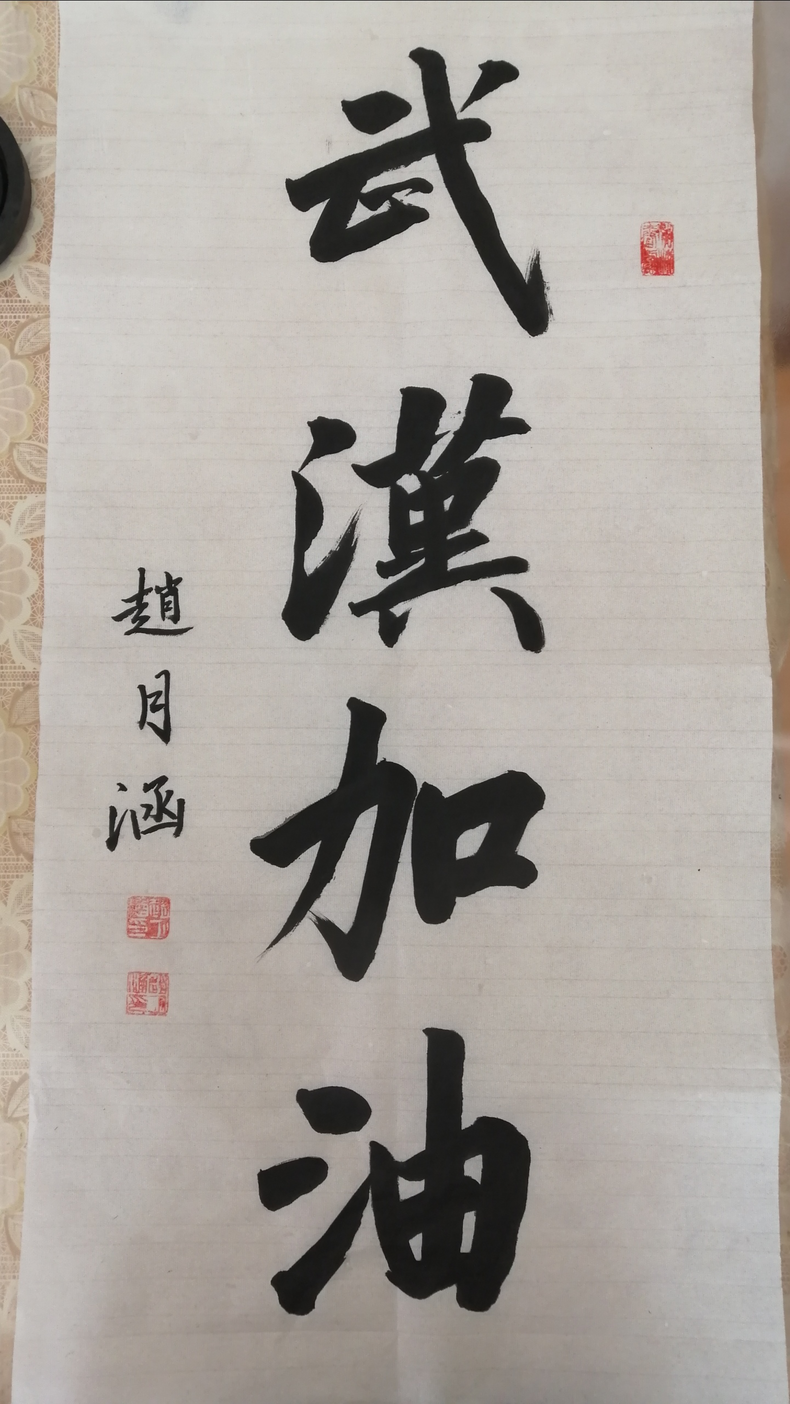 武漢加油
趙月涵